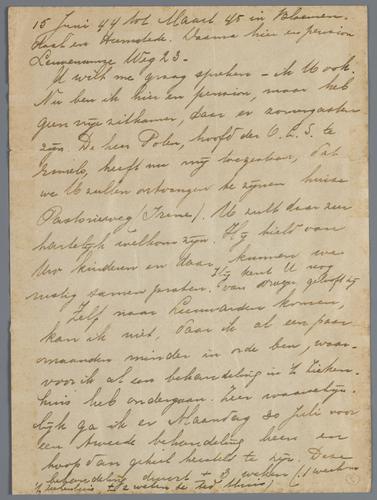 15 Juni 44 tot Maart 45 in Bloemen-
daal en Heemstede. Daarna hier en pension
Leuvenumse Weg 23.-
U wilt me graag spreken - ik U ook.
Nu ben ik hier en pension, maar heb
geen vrije zitkamer, daar er zomergasten
zijn. De heer Polen, hoofd der O.L.S. te
Ermelo, heeft me mij toegestaan, dat
we U zullen ontvangen te zijnen huize
Pastorieweg (Irene). U zult daar zeer
hartelijk welkom zijn. Hij hielt van
Uw kinderen en daar kunnen we
rustig samen praten. Hij kent U nog
van vroeger, gelooft hij
Zelf naar Leeuwarden komen,
kan ik niet, daar ik al een paar
maanden minder in orde ben, waar-
voor ik al een behandeling in 't Zieken-
huis heb ondergaan. Zeer waarschijn-
lijk ga ik er Maandag 30 Juli voor
een tweede behandeling heen en
hoop dan geheel hersteld te zijn. Deze
behandeling duurt ± 3 weken (1 week in
't ziekenhuis, 2 weken thuis)